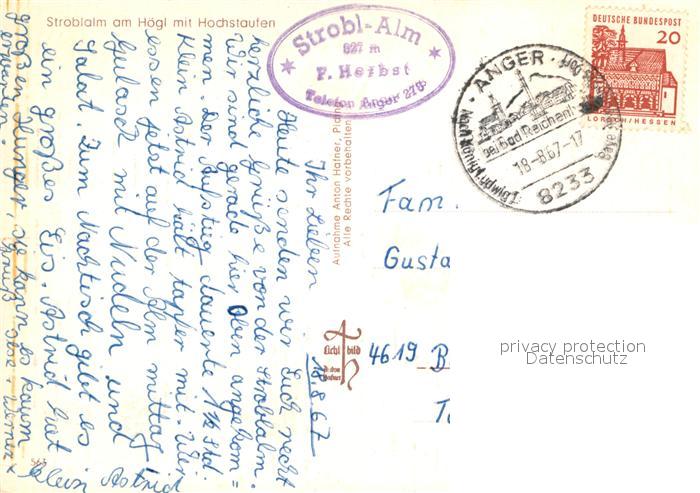 Stroblalm am Högl mit Hochstaufen
Strobl-Alm
827 m
F. Herbst
Telefon Anger 270
DEUTSCHE BUNDESPOST
20
LORSCH/HESSEN
ANGER
bei Bad Reichenhall
18-8.67-17
8233
18.8.67
Ihr Lieben
Heute senden wir Euch recht
herzliche Grüße von der Stroblalm.
Wir sind gerade hier oben angekom=
men. Der Aufstieg dauerte 1½ Std.
Klein Astrid hält tapfer mit. Wir
essen jetzt auf der Alm mittag
Gulasch mit Nudeln und
Salat. Zum Nachtisch gibt es
ein großes Eis. Astrid hat
großen Hunger, sie kann es kaum
erwarten.
Gruß
Klein Astrid
Aufnahme Anton Hafner,
Alle Rechte vorbehalten
Lichtbild
Fam.
Gusta
4619 B
privacy protection
Datenschutz